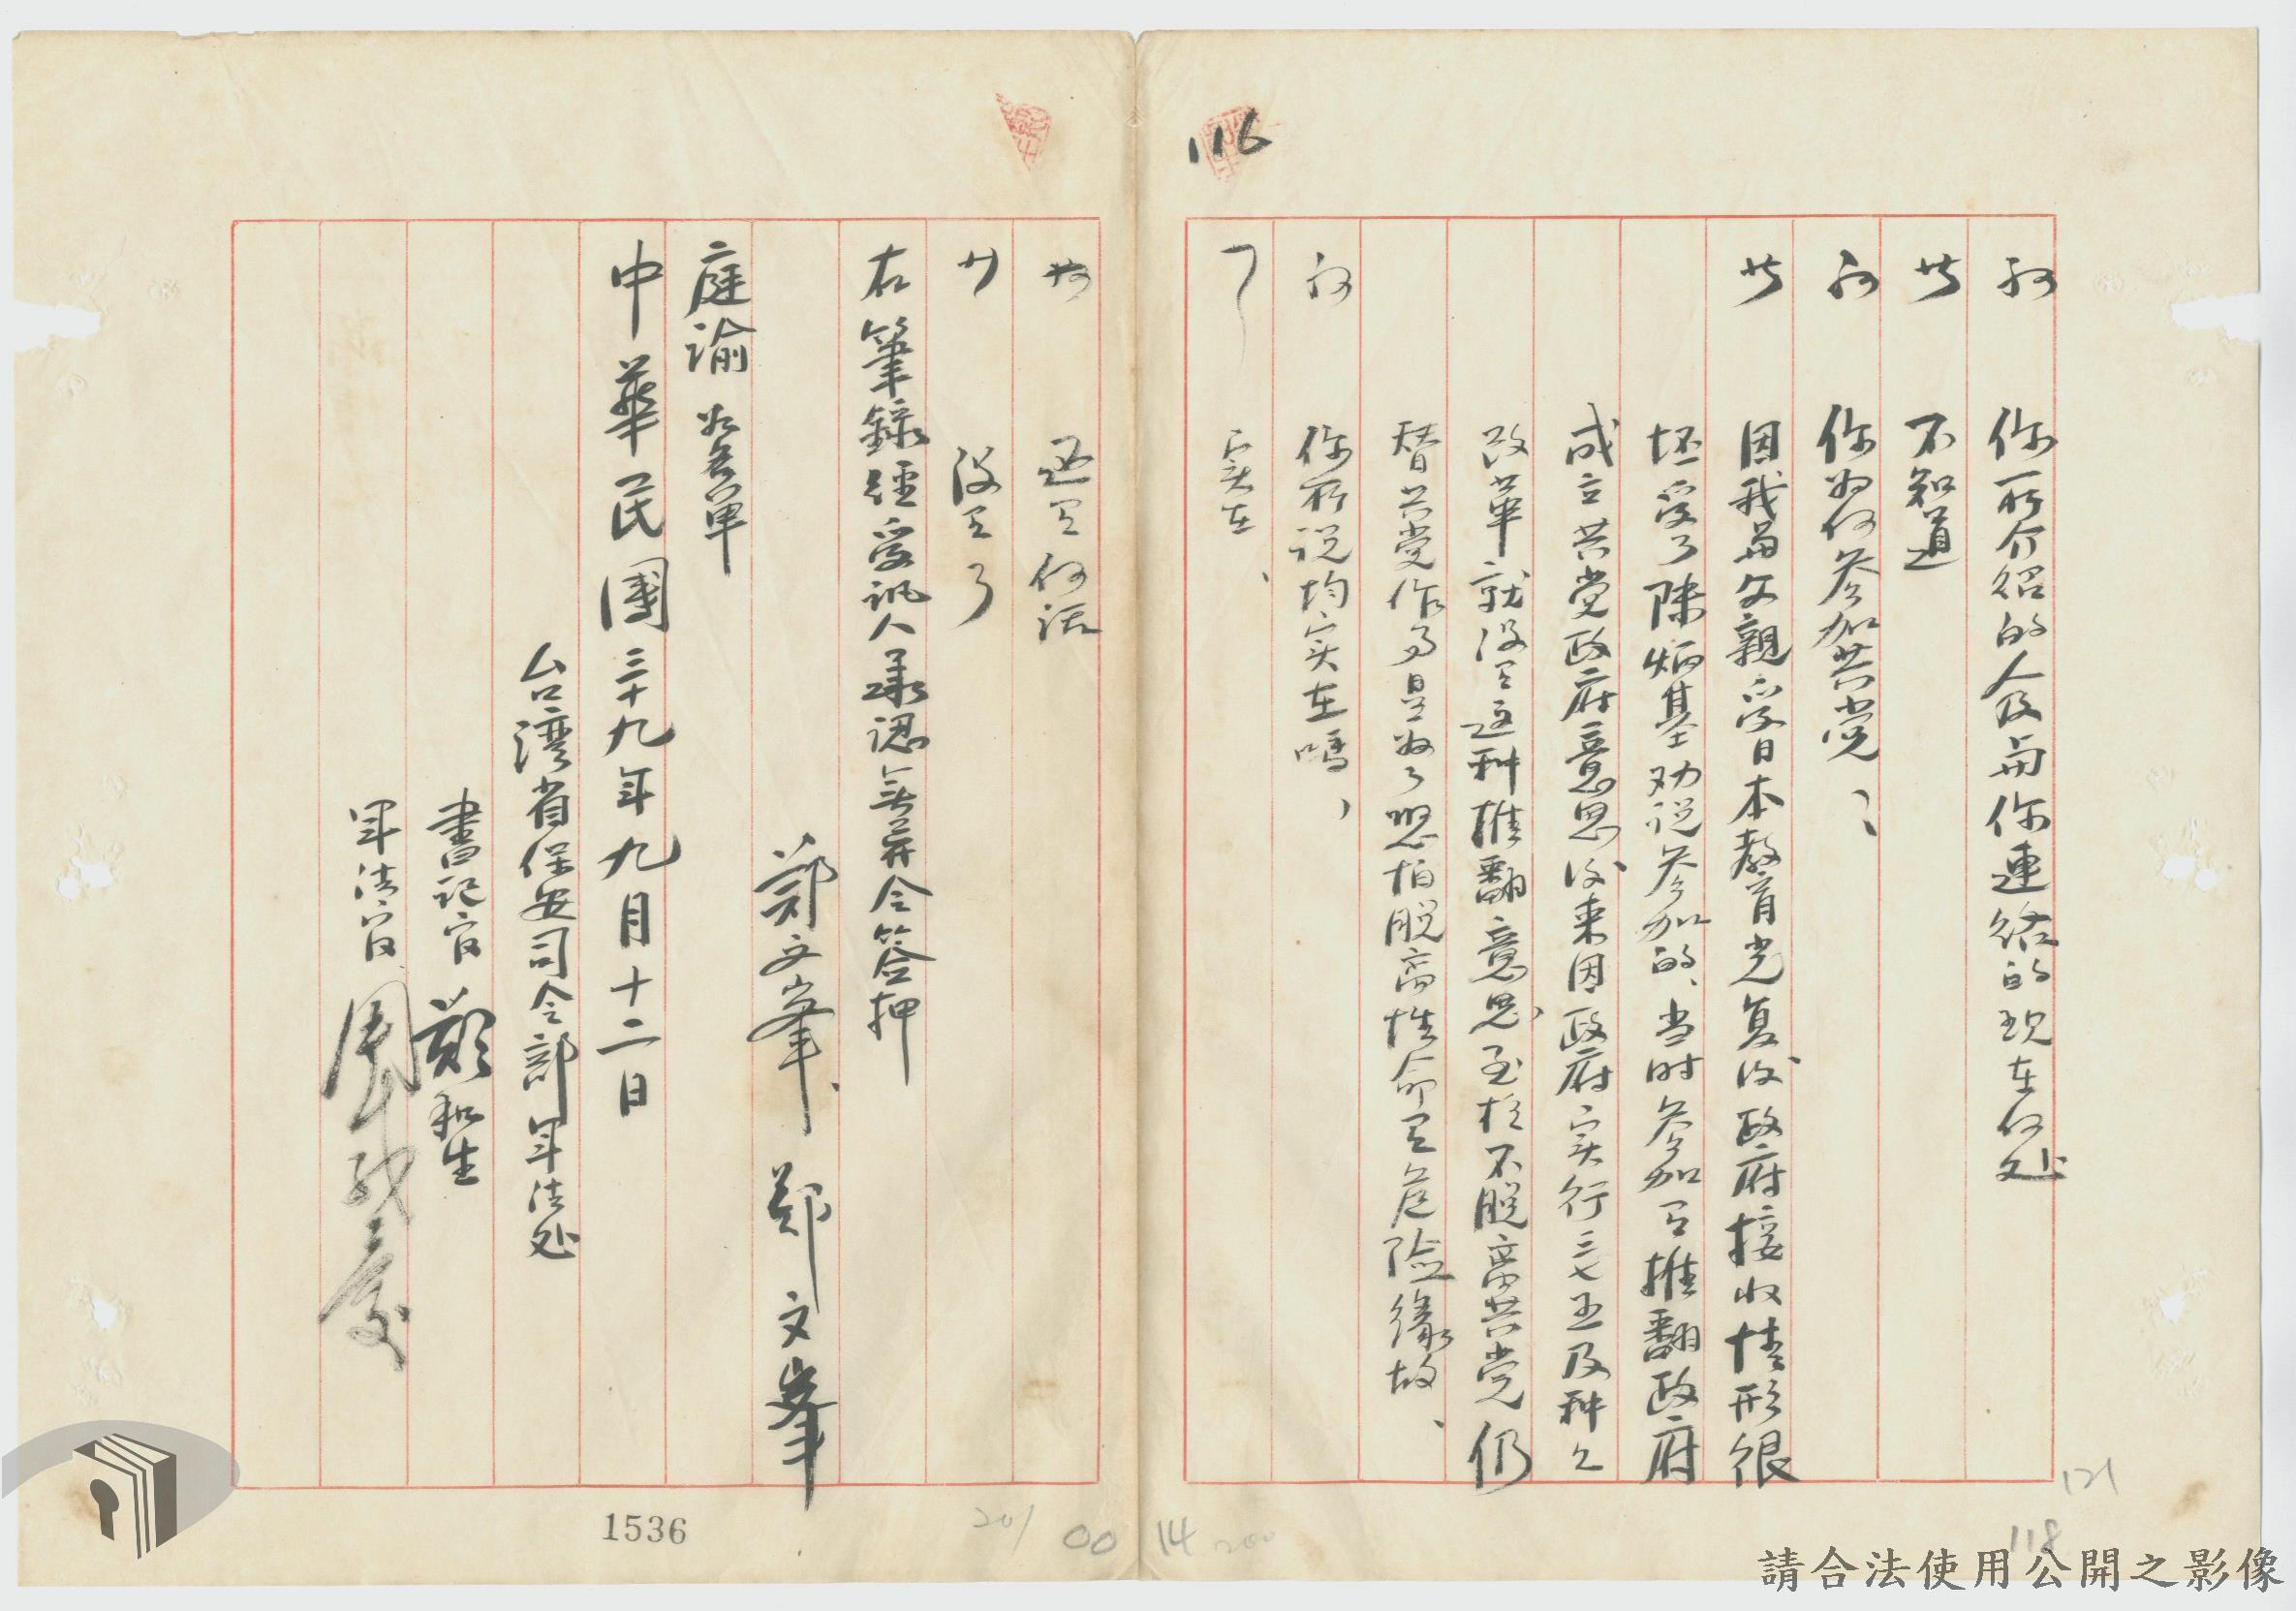 116
問 你所介紹的人及与你連絡的現在何处
答 不知道
問 你为何参加共党、
答 因我当父親受日本教育光复後政府接收情形很
坯受了陳炳基劝説参加的、当时参加有推翻政府
成立共党政府意思後来因政府实行三七五及种々
改革就没有这种推翻意思至於不脱离共党仍
替共党作事是为了恐怕脱离性命有危险缘故、
問 你所説均实在嗎、
答 实在、
問 还有何話
答 没有了
右筆録經受訊人承認無異令簽押
鄭文峯、 鄭文峯
庭諭 如名單
中華民國三十九年九月十二日
台湾省保安司令部軍法处
書記官 鄭和生
軍法官 周
1536
201
00
14
200
121
118
請合法使用公開之影像